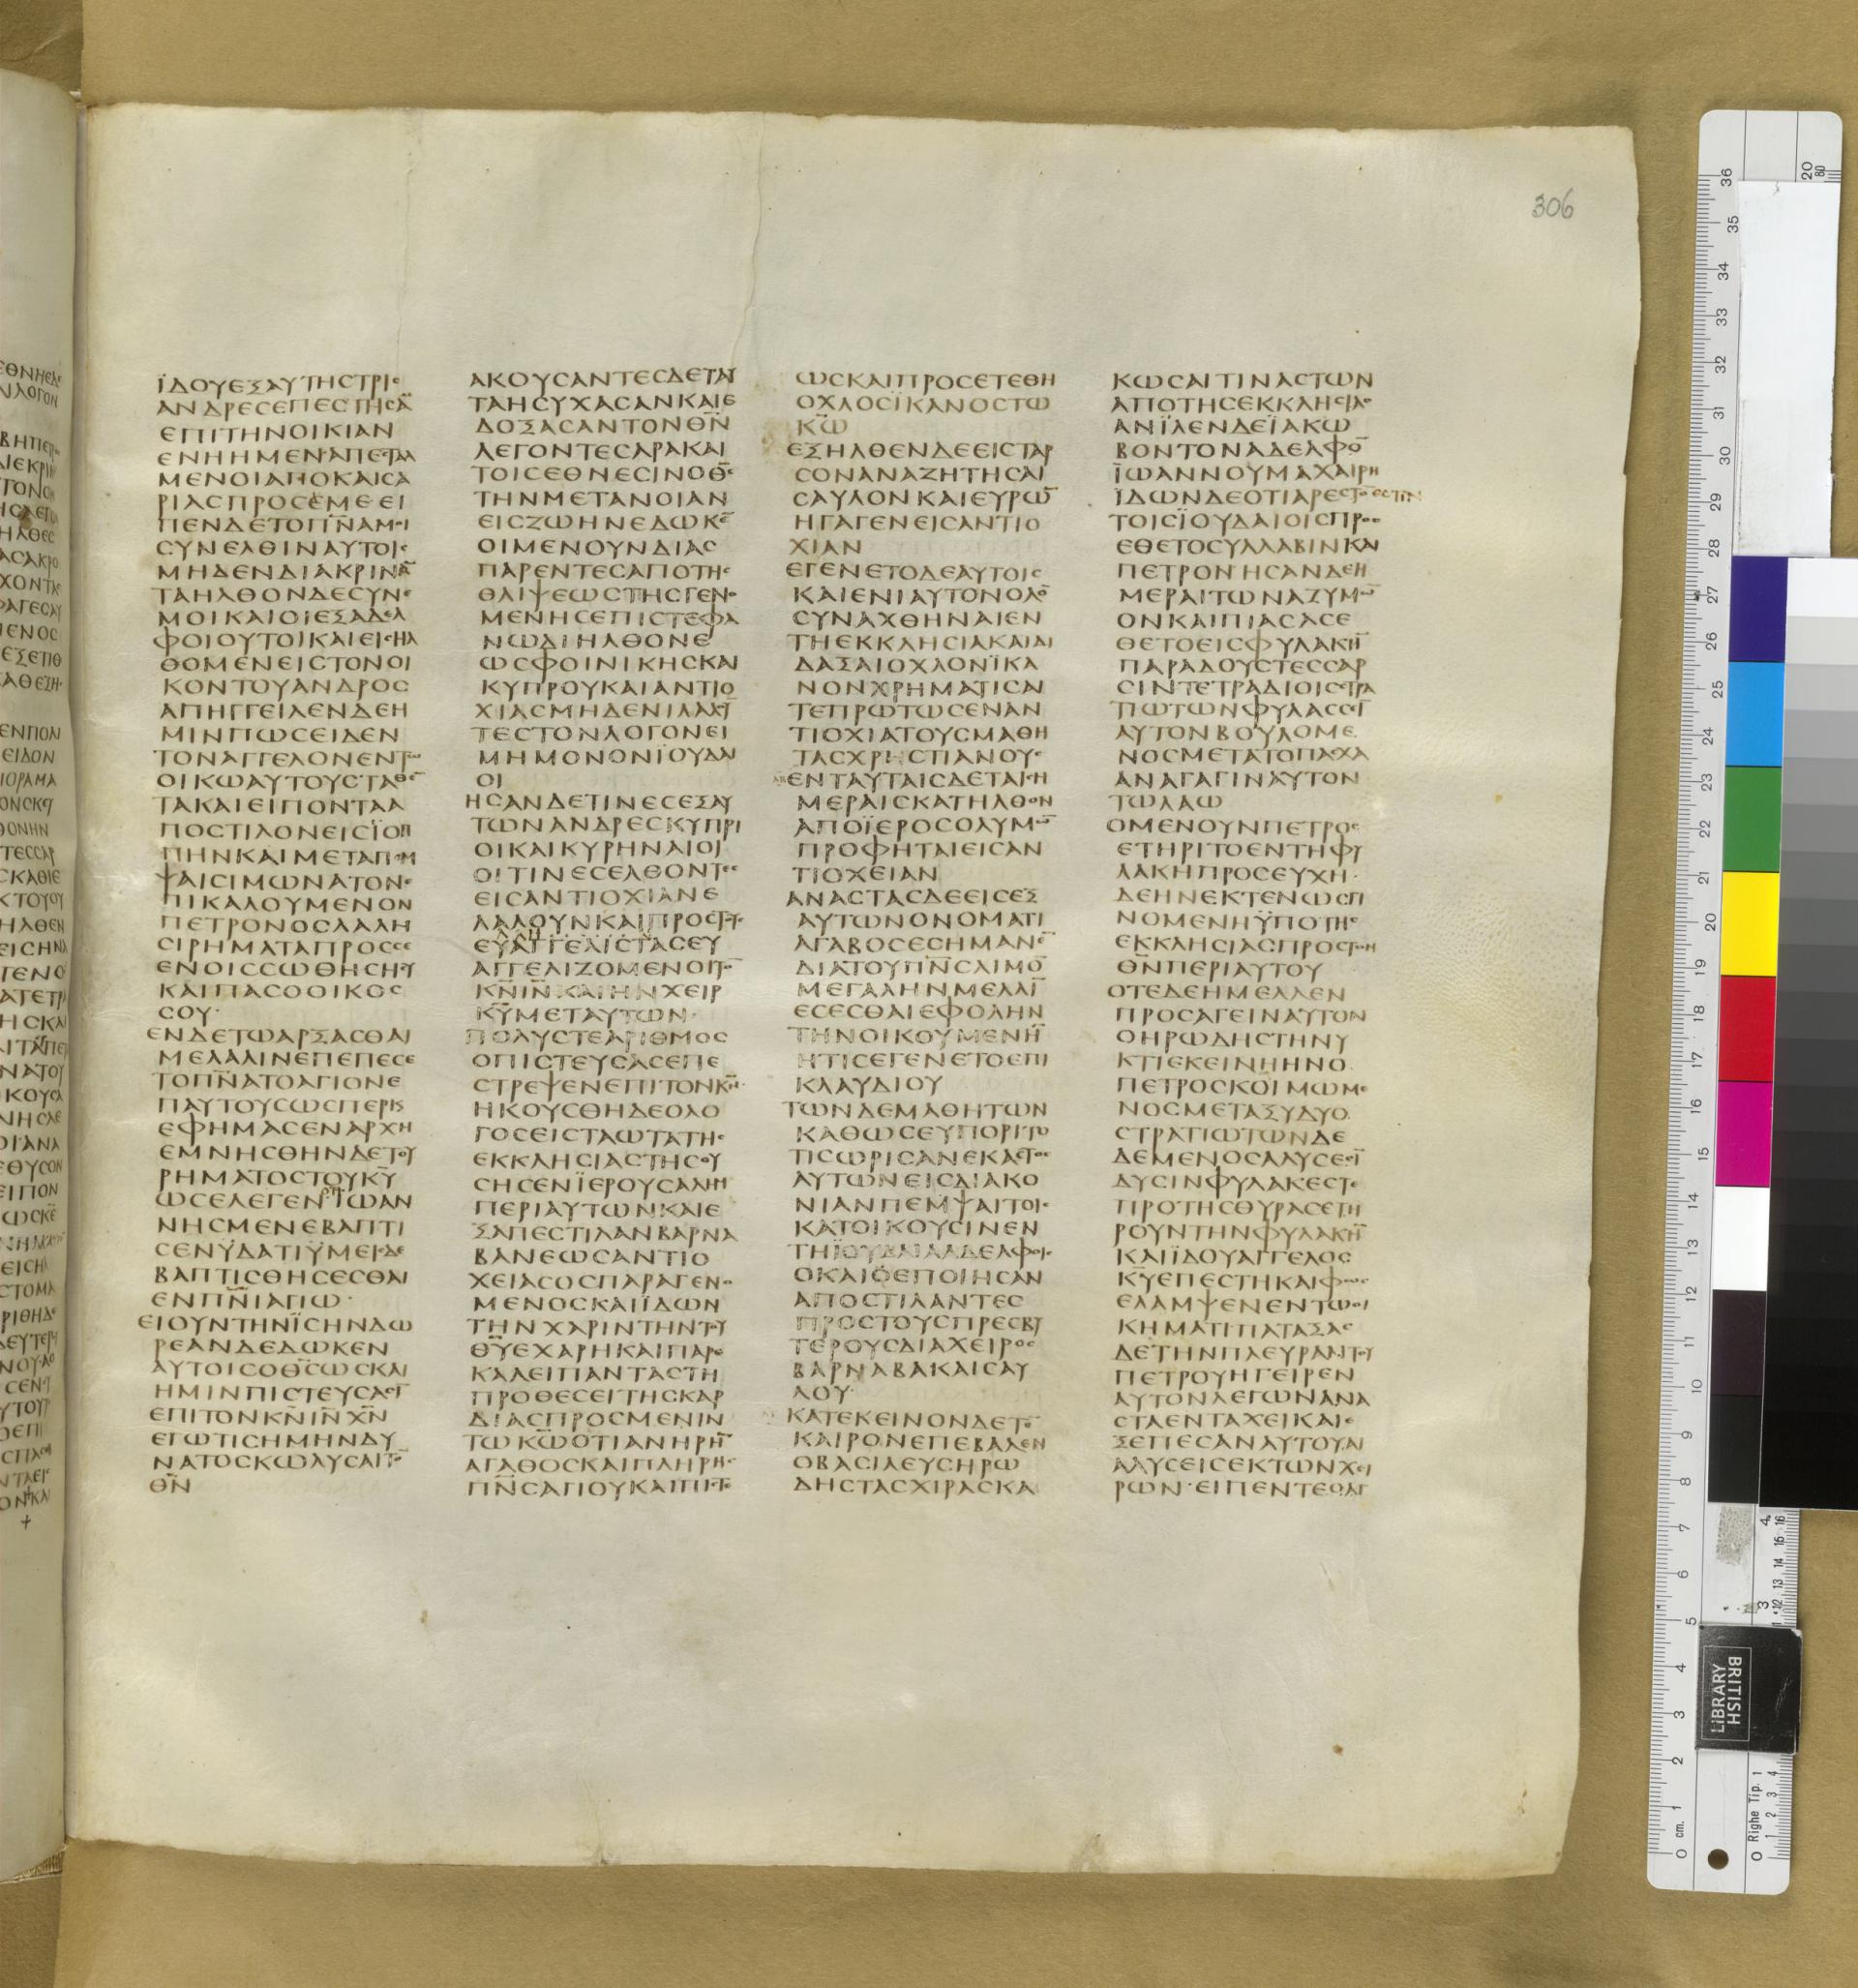 306
ΪΔΟΥΕΞΑΥΤΗϹΤΡΙϹ
ΑΝΔΡΕϹΕΠΕϹΤΗϹΑ̅
ΕΠΙΤΗΝΟΙΚΙΑΝ
ΕΝΗΗΜΕΝΑΠΕϹΤΑΛ
ΜΕΝΟΙΑΠΟΚΑΙϹΑ
ΡΙΑϹΠΡΟϹΕΜΕΕΙ
ΠΕΝΔΕΤΟΠ̅Ν̅ΑΜΟΙ
ϹΥΝΕΛΘΙΝΑΥΤΟΙϹ
ΜΗΔΕΝΔΙΑΚΡΙΝΑ̅
ΤΑΗΛΘΟΝΔΕϹΥΝΕ
ΜΟΙΚΑΙΟΙΕΞΑΔΕΛ
ΦΟΙΟΥΤΟΙΚΑΙΕΙϹΗΛ
ΘΟΜΕΝΕΙϹΤΟΝΟΙ
ΚΟΝΤΟΥΑΝΔΡΟϹ
ΑΠΗΓΓΕΙΛΕΝΔΕΗ
ΜΙΝΠΩϹΕΙΔΕΝ
ΤΟΝΑΓΓΕΛΟΝΕΝΤΩ
ΟΙΚΩΑΥΤΟΥϹΤΑΘΕ̅
ΤΑΚΑΙΕΙΠΟΝΤΑΑ
ΠΟϹΤΙΛΟΝΕΙϹΪΟΠ
ΠΗΝΚΑΙΜΕΤΑΠΕΜ
ΨΑΙϹΙΜΩΝΑΤΟΝΕ
ΠΙΚΑΛΟΥΜΕΝΟΝ
ΠΕΤΡΟΝΟϹΛΑΛΗ
ϹΙΡΗΜΑΤΑΠΡΟϹϹΕ
ΕΝΟΙϹϹΩΘΗϹΗϹΥ
ΚΑΙΠΑϹΟΟΙΚΟϹ
ϹΟΥ·
ΕΝΔΕΤΩΑΡΞΑϹΘΑΙ
ΜΕΛΑΛΙΝΕΠΕΠΕϹΕ
ΤΟΠ̅Ν̅ΑΤΟΑΓΙΟΝΕ
ΠΑΥΤΟΥϹΩϹΠΕΡΚ
ΕΦΗΜΑϹΕΝΑΡΧΗ
ΕΜΝΗϹΘΗΝΔΕΤΟΥ
ΡΗΜΑΤΟϹΤΟΥΚ̅Υ̅
ΩϹΕΛΕΓΕΝΪΩΑΝ
ΝΗϹΜΕΝΕΒΑΠΤΙ
ϹΕΝΫΔΑΤΙΫΜΕΙϹΔΕ
ΒΑΠΤΙϹΘΗϹΕϹΘΑΙ
ΕΝΠ̅Ν̅ΙΑΓΙΩ·
ΕΙΟΥΝΤΗΝΪϹΗΝΔΩ
ΡΕΑΝΔΕΔΩΚΕΝ
ΑΥΤΟΙϹΟΘ̅Ϲ̅ΩϹΚΑΙ
ΗΜΙΝΠΙϹΤΕΥϹΑϹΙ̅
ΕΠΙΤΟΝΚ̅Ν̅Ι̅Ν̅Χ̅Ν̅
ΕΓΩΤΙϹΗΜΗΝΔΥ
ΝΑΤΟϹΚΩΛΥϹΑΙΤΟ̅
Θ̅Ν̅
ΑΚΟΥϹΑΝΤΕϹΔΕΤΑΥ
ΤΑΗϹΥΧΑϹΑΝΚΑΙΕ
ΔΟΞΑϹΑΝΤΟΝΘ̅Ν̅
ΛΕΓΟΝΤΕϹΑΡΑΚΑΙ
ΤΟΙϹΕΘΝΕϹΙΝΟΘ̅Ϲ̅
ΤΗΝΜΕΤΑΝΟΙΑΝ
ΕΙϹΖΩΗΝΕΔΩΚΕ̅
ΟΙΜΕΝΟΥΝΔΙΑϹ
ΠΑΡΕΝΤΕϹΑΠΟΤΗϹ
ΘΛΙΨΕΩϹΤΗϹΓΕΝΟ
ΜΕΝΗϹΕΠΙϹΤΕΦΑ
ΝΩΔΙΗΛΘΟΝΕ
ΩϹΦΟΙΝΙΚΗϹΚΑΙ
ΚΥΠΡΟΥΚΑΙΑΝΤΙΟ
ΧΙΑϹΜΗΔΕΝΙΛΑΛΟΥ̅
ΤΕϹΤΟΝΛΟΓΟΝΕΙ
ΜΗΜΟΝΟΝΪΟΥΔΑΙ
ΟΙ
ΗϹΑΝΔΕΤΙΝΕϹΕΞΑΥ
ΤΩΝΑΝΔΡΕϹΚΥΠΡΙ
ΟΙΚΑΙΚΥΡΗΝΑΙΟΙ
ΟΙΤΙΝΕϹΕΛΘΟΝΤΕϹ
ΕΙϹΑΝΤΙΟΧΙΑΝΕ
ΛΑΛΟΥΝΚΑΙΠΡΟϹΤΟΥϹ
ΕΥΑΓΓΕΛΙϹΤΑϹΕΥ
ΑΓΓΕΛΙΖΟΜΕΝΟΙΤΟ̅
Κ̅Ν̅Ι̅Ν̅ΚΑΙΗΝΧΕΙΡ
Κ̅Υ̅ΜΕΤΑΥΤΩΝ·
ΠΟΛΥϹΤΕΑΡΙΘΜΟϹ
ΟΠΙϹΤΕΥϹΑϹΕΠΕ
ϹΤΡΕΨΕΝΕΠΙΤΟΝΚ̅Ν̅·
ΗΚΟΥϹΘΗΔΕΟΛΟ
ΓΟϹΕΙϹΤΑΩΤΑΤΗϹ
ΕΚΚΛΗϹΙΑϹΤΗϹΟΥ
ϹΗϹΕΝΪΕΡΟΥϹΑΛΗΜ
ΠΕΡΙΑΥΤΩΝΚΑΙΕ
ΞΑΠΕϹΤΙΛΑΝΒΑΡΝΑ
ΒΑΝΕΩϹΑΝΤΙΟ
ΧΕΙΑϹΟϹΠΑΡΑΓΕΝΟ
ΜΕΝΟϹΚΑΙΪΔΩΝ
ΤΗΝΧΑΡΙΝΤΗΝΤΟΥ
Θ̅Υ̅ΕΧΑΡΗΚΑΙΠΑΡΕ
ΚΑΛΕΙΠΑΝΤΑϹΤΗ
ΠΡΟΘΕϹΕΙΤΗϹΚΑΡ
ΔΙΑϹΠΡΟϹΜΕΝΙΝ
ΤΩΚ̅Ω̅ΟΤΙΑΝΗΡΗ̅
ΑΓΑΘΟϹΚΑΙΠΛΗΡΗϹ
Π̅Ν̅Ϲ̅ΑΓΙΟΥΚΑΙΠΙϹΤΕ
ΩϹΚΑΙΠΡΟϹΕΤΕΘΗ
ΟΧΛΟϹΪΚΑΝΟϹΤΩ
Κ̅Ω̅
ΕΞΗΛΘΕΝΔΕΕΙϹΤΑΡ
ϹΟΝΑΝΑΖΗΤΗϹΑΙ
ϹΑΥΛΟΝΚΑΙΕΥΡΩ̅
ΗΓΑΓΕΝΕΙϹΑΝΤΙΟ
ΧΙΑΝ
ΕΓΕΝΕΤΟΔΕΑΥΤΟΙϹ
ΚΑΙΕΝΙΑΥΤΟΝΟΛΟ̅
ϹΥΝΑΧΘΗΝΑΙΕΝ
ΤΗΕΚΚΛΗϹΙΑΚΑΙΔΙ
ΔΑΞΑΙΟΧΛΟΝΪΚΑ
ΝΟΝΧΡΗΜΑΤΙϹΑΙ
ΤΕΠΡΩΤΩϹΕΝΑΝ
ΤΙΟΧΙΑΤΟΥϹΜΑΘΗ
ΤΑϹΧΡΗϹΤΙΑΝΟΥϹ
ΕΝΤΑΥΤΑΙϹΔΕΤΑΙϹΗ
ΜΕΡΑΙϹΚΑΤΗΛΘΟΝ
ΑΠΟΪΕΡΟϹΟΛΥΜΩ̅
ΠΡΟΦΗΤΑΙΕΙϹΑΝ
ΤΙΟΧΕΙΑΝ
ΑΝΑϹΤΑϹΔΕΕΙϹΕΞ
ΑΥΤΩΝΟΝΟΜΑΤΙ
ΑΓΑΒΟϹΕϹΗΜΑΝΕ̅
ΔΙΑΤΟΥΠ̅Ν̅Ϲ̅ΛΙΜΟ̅
ΜΕΓΑΛΗΝΜΕΛΛΙ̅
ΕϹΕϹΘΑΙΕΦΟΛΗΝ
ΤΗΝΟΙΚΟΥΜΕΝΗ̅
ΗΤΙϹΕΓΕΝΕΤΟΕΠΙ
ΚΛΑΥΔΙΟΥ
ΤΩΝΔΕΜΑΘΗΤΩΝ
ΚΑΘΩϹΕΥΠΟΡΙΤΟ
ΤΙϹΩΡΙϹΑΝΕΚΑϹΤΟϹ
ΑΥΤΩΝΕΙϹΔΙΑΚΟ
ΝΙΑΝΠΕΜΨΑΙΤΟΙϹ
ΚΑΤΟΙΚΟΥϹΙΝΕΝ
ΤΗΪΟΥΔΑΙΑΑΔΕΛΦΟΙϹ
ΟΚΑΙΕΠΟΙΗϹΑΝ
ΑΠΟϹΤΙΛΑΝΤΕϹ
ΠΡΟϹΤΟΥϹΠΡΕϹΒΥ
ΤΕΡΟΥϹΔΙΑΧΕΙΡΟϹ
ΒΑΡΝΑΒΑΚΑΙϹΑΥ
ΛΟΥ·
ΚΑΤΕΚΕΙΝΟΝΔΕΤΟ̅
ΚΑΙΡΟΝΕΠΕΒΑΛΕΝ
ΟΒΑϹΙΛΕΥϹΗΡΩ
ΔΗϹΤΑϹΧΙΡΑϹΚΑ
ΚΩϹΑΙΤΙΝΑϹΤΩΝ
ΑΠΟΤΗϹΕΚΚΛΗϹΙΑϹ
ΑΝΪΛΕΝΔΕΪΑΚΩ
ΒΟΝΤΟΝΑΔΕΛΦΟ̅
ΪΩΑΝΝΟΥΜΑΧΑΙΡΗ
ΪΔΩΝΔΕΟΤΙΑΡΕϹΤΟ̅ΕϹΤΙΝ
ΤΟΙϹΪΟΥΔΑΙΟΙϹΠΡΟϹ
ΕΘΕΤΟϹΥΛΛΑΒΙΝΚΑΙ
ΠΕΤΡΟΝΗϹΑΝΔΕΗ
ΜΕΡΑΙΤΩΝΑΖΥΜΩ̅
ΟΝΚΑΙΠΙΑϹΑϹΕ
ΘΕΤΟΕΙϹΦΥΛΑΚΗ̅
ΠΑΡΑΔΟΥϹΤΕϹϹΑΡ
ϹΙΝΤΕΤΡΑΔΙΟΙϹϹΤΡΑ
ΤΙΩΤΩΝΦΥΛΑϹϹΙ̅
ΑΥΤΟΝΒΟΥΛΟΜΕ
ΝΟϹΜΕΤΑΤΟΠΑϹΧΑ
ΑΝΑΓΑΓΙΝΑΥΤΟΝ
ΤΩΛΑΩ
ΟΜΕΝΟΥΝΠΕΤΡΟϹ
ΕΤΗΡΙΤΟΕΝΤΗΦΥ
ΛΑΚΗΠΡΟϹΕΥΧΗ·
ΔΕΗΝΕΚΤΕΝΩϹΓΙ
ΝΟΜΕΝΗΫΠΟΤΗϹ
ΕΚΚΛΗϹΙΑϹΠΡΟϹΤΟΝ
Θ̅Ν̅ΠΕΡΙΑΥΤΟΥ
ΟΤΕΔΕΗΜΕΛΛΕΝ
ΠΡΟϹΑΓΕΙΝΑΥΤΟΝ
ΟΗΡΩΔΗϹΤΗΝΥ
ΚΤΙΕΚΕΙΝΗΗΝΟ
ΠΕΤΡΟϹΚΟΙΜΩΜΕ
ΝΟϹΜΕΤΑΞΥΔΥΟ
ϹΤΡΑΤΙΩΤΩΝΔΕ
ΔΕΜΕΝΟϹΑΛΥϹΕϹΙ̅
ΔΥϹΙΝΦΥΛΑΚΕϹΤΕ
ΠΡΟΤΗϹΘΥΡΑϹΕΤΗ
ΡΟΥΝΤΗΝΦΥΛΑΚΗ̅
ΚΑΙΪΔΟΥΑΓΓΕΛΟϹ
Κ̅Υ̅ΕΠΕϹΤΗΚΑΙΦΩϹ
ΕΛΑΜΨΕΝΕΝΤΩΟΙ
ΚΗΜΑΤΙΠΑΤΑΞΑϹ
ΔΕΤΗΝΠΛΕΥΡΑΝΤΟΥ
ΠΕΤΡΟΥΗΓΕΙΡΕΝ
ΑΥΤΟΝΛΕΓΩΝΑΝΑ
ϹΤΑΕΝΤΑΧΕΙΚΑΙΕ
ΞΕΠΕϹΑΝΑΥΤΟΥΑΙ
ΑΛΥϹΕΙϹΕΚΤΩΝΧΕΙ
ΡΩΝ·ΕΙΠΕΝΤΕΟΑΓ
BRITISH
LIBRARY